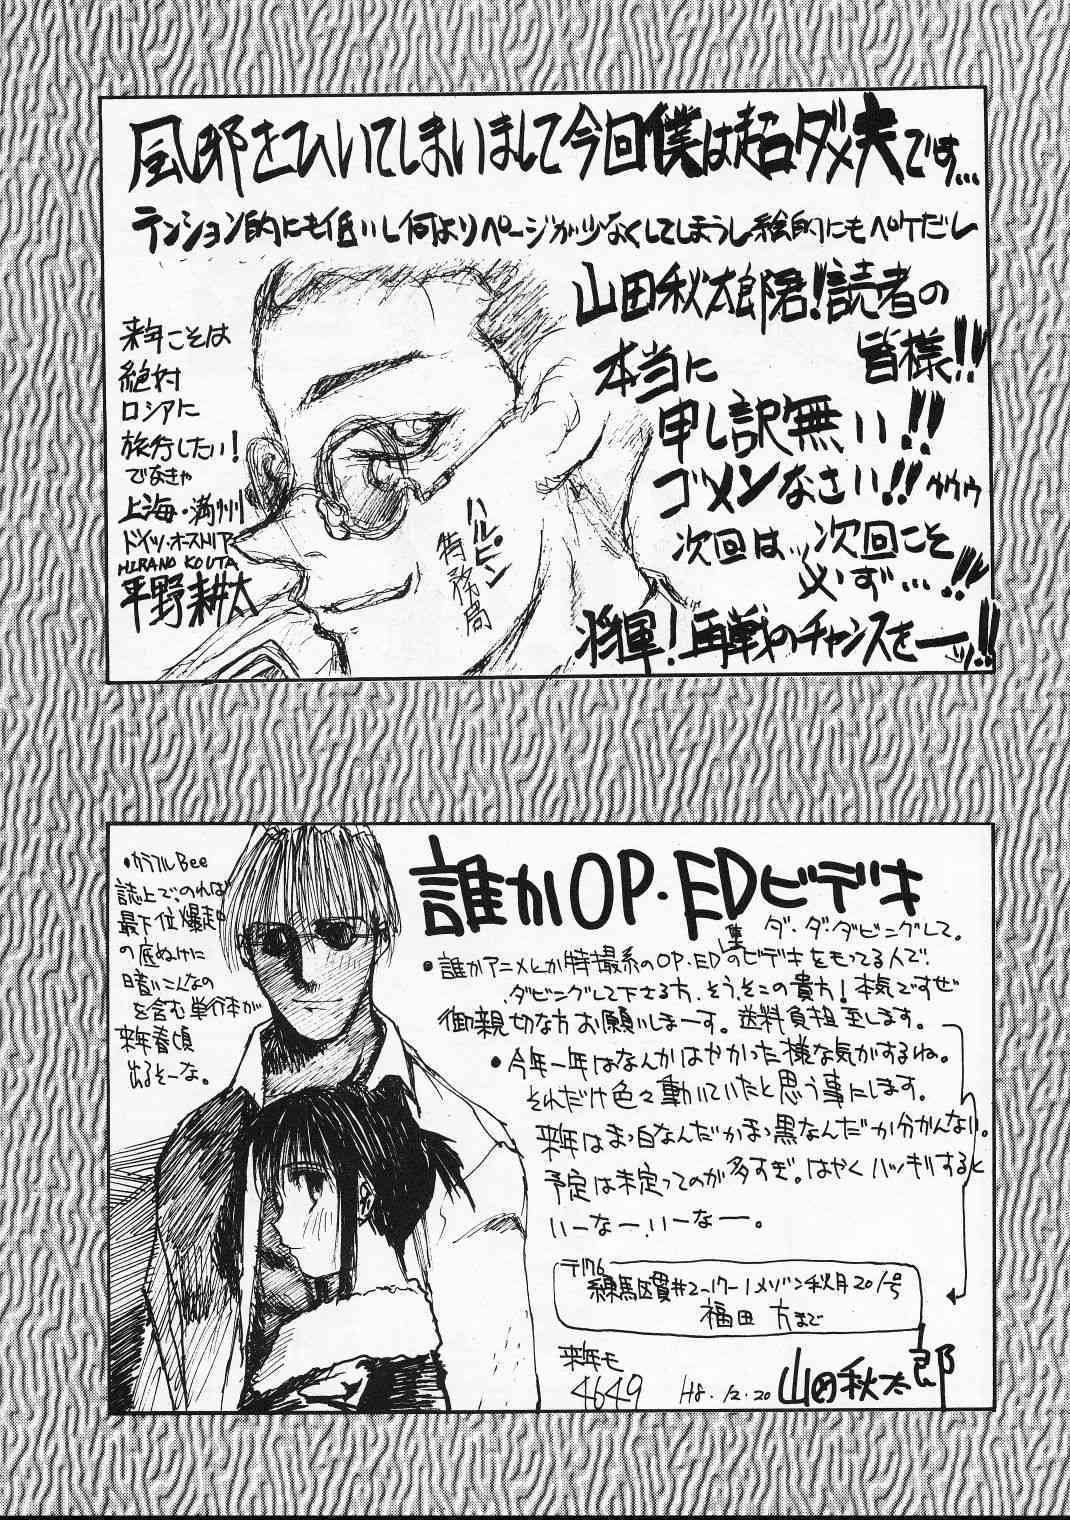 風邪をひいてしまいまして今回僕は超ダメ夫です…
テンション的にも低いし何よりページが少なくしてしまうし絵的にもペケだし
山田秋太郎君!読者の
皆様!!
本当に
申し訳無い!!
ゴメンなさい!!ゥゥゥ
次回は…次回こそ
必ず…!!
将軍!再戦のチャンスをーッ!!
来年こそは
絶対
ロシアに
旅行したい!
でなきゃ
上海・満州
ドイツ・オーストリア
HIRANO KOUTA
平野耕太
ハルピン
特務局
誰かOP・EDビデキ
ダ・ダ・ダビングして。
・誰かアニメとか特撮系のOP・ED集のビデキをもってる人で、
ダビングして下さる方、そう、そこの貴方!本気ですぜ
御親切な方お願いしまーす。送料負担至します。
・今年一年はなんかはやかった様な気がするね。
それだけ色々動いていたと思う事にします。
来年はまっ白なんだかまっ黒なんだか分かんない。
予定は未定ってのが多すぎ。はやくハッキリすると
いーなー、いーなー。
〒176
練馬区貫井2-17-1メゾン秋月201号
福田方まで
来年も
4649
H8.12.20
山田秋太郎
・カラフルBee
誌上で、のれば
最下位爆走中
の底ぬけに
暗いこんなの
を含む単行本が
来年春頃
出るそーな。